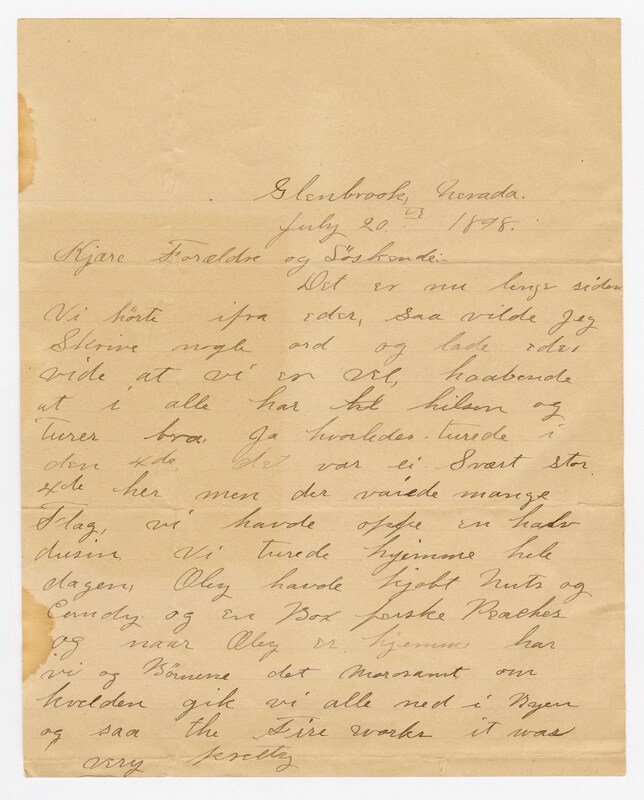 Glenbrook, Nevada.
July 20 1898.
Kjære Forældre og Söskende:
Det er nu lenge siden
Vi hörte ifra eder, saa vilde Jeg
Skrive nogle ord og lade eder
vide at vi er vel, haabende
at i alle har hilsen og
turer bra. Ja hvorledes turede i
den 4de, det var ei Svært stor
4de her men der vaiede mange
Flag, vi havde oppe en halv
dusin. Vi turede hjemme hele
dagen, Oley havde kjöbt Nuts og
Candy og en Box ferske Peaches
og naar Oley er hjemme har
vi og Börnene det morosamt om
kvelden gik vi alle ned i Byen
og saa the Fire works it was
very pretty